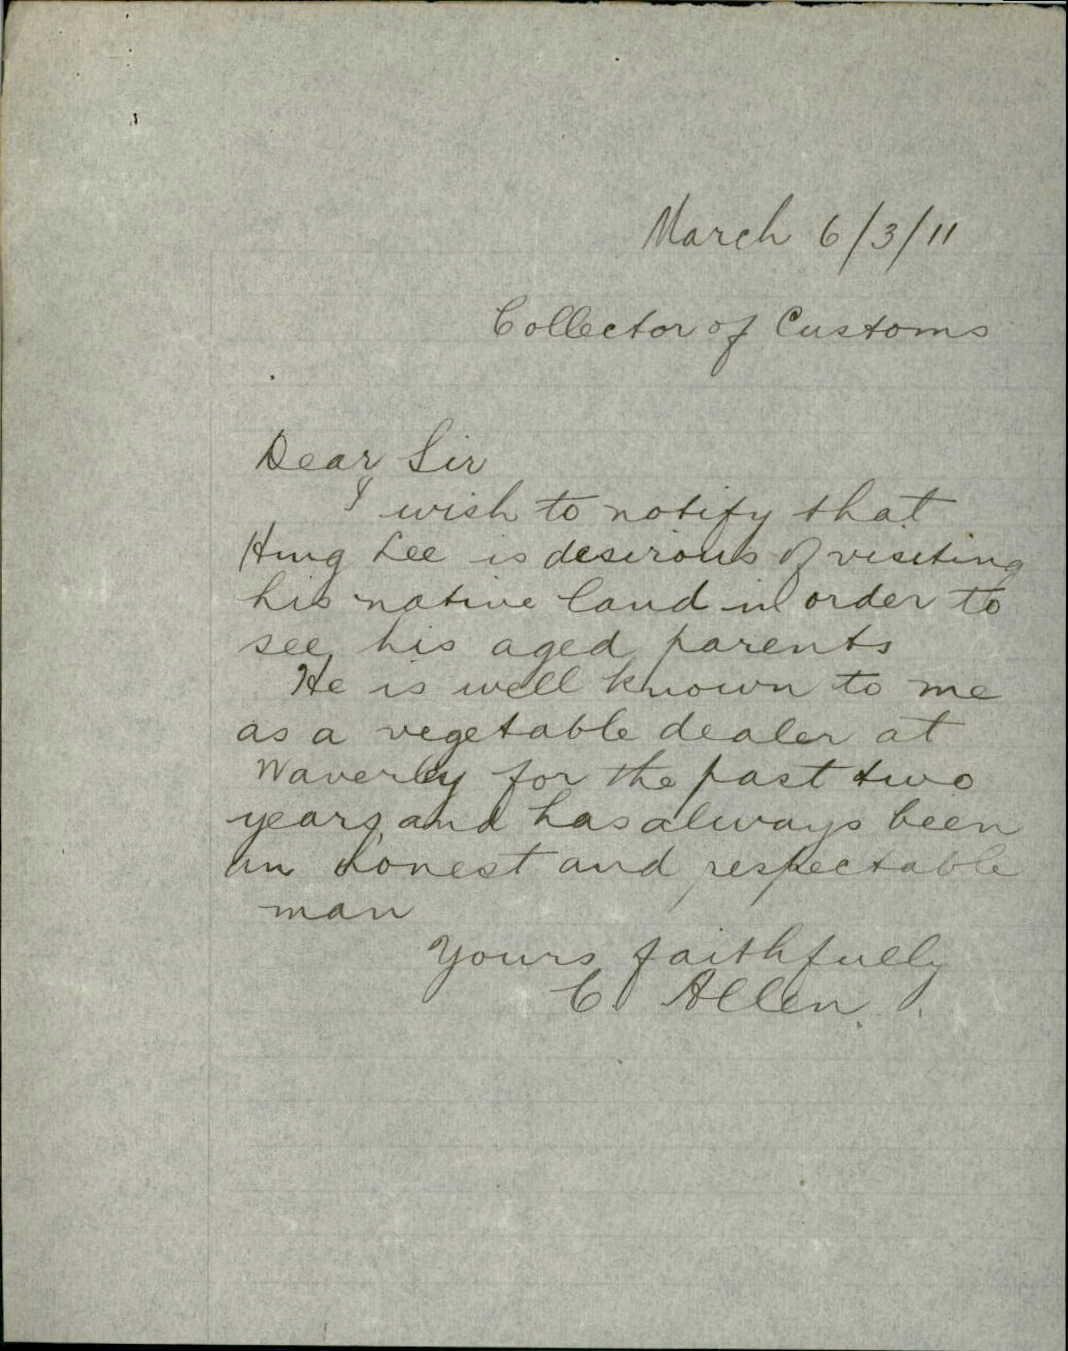 March 6/3/11
Collector of Customs
Dear Sir
I wish to notify that
Hing Lee is desirous of visiting
his native land in order to
see his aged parents
He is well known to me
as a vegetable dealer at
Waverley for the past two
years and has always been
an honest and respectable
man
Yours faithfully
C Allen.